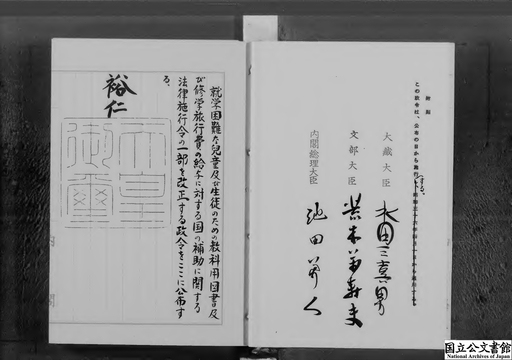 附則
この政令は、公布の日から施行する。
大蔵大臣 水田三喜男
文部大臣 荒木萬壽夫
内閣総理大臣 池田勇人
就学困難な児童及び生徒のための教科用図書及
び修学旅行費の給与に対する国の補助に関する
法律施行令の一部を改正する政令をここに公布す
る。
裕仁
天皇御璽
国立公文書館
National Archives of Japan